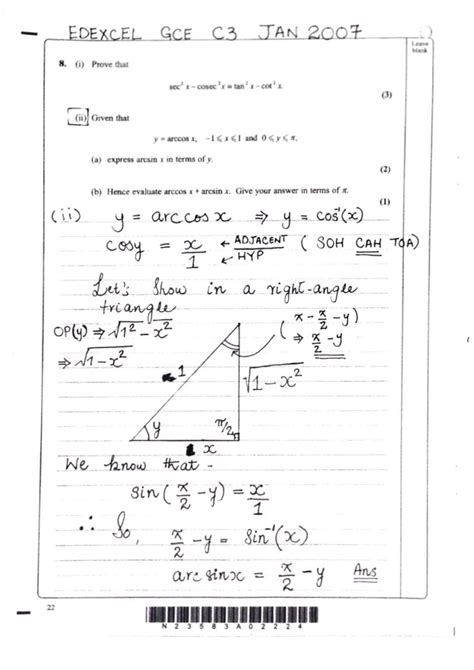 EDEXCEL GCE C3 JAN 2007
Leave
blank
8. (i) Prove that
sec² x – cosec² x ≡ tan² x – cot² x.
(3)
(ii) Given that
y = arccos x, –1 ⩽ x ⩽ 1 and 0 ⩽ y ⩽ π,
(a) express arcsin x in terms of y.
(2)
(b) Hence evaluate arccos x + arcsin x. Give your answer in terms of π.
(1)
(ii) y = arccos x ⇒ y = cos⁻¹(x)
cosy = x/1 ← ADJACENT ← HYP (SOH CAH TOA)
Let's show in a right-angle
triangle
OP(y) ⇒ √1² – x²
⇒ √1 – x²
(π – π/2 – y)
⇒ π/2 – y
1
√1 – x²
y
π/2
x
We know that -
sin(π/2 – y) = x/1
∴ So, π/2 – y = sin⁻¹(x)
arcsinx = π/2 – y Ans
22
N23583A02224